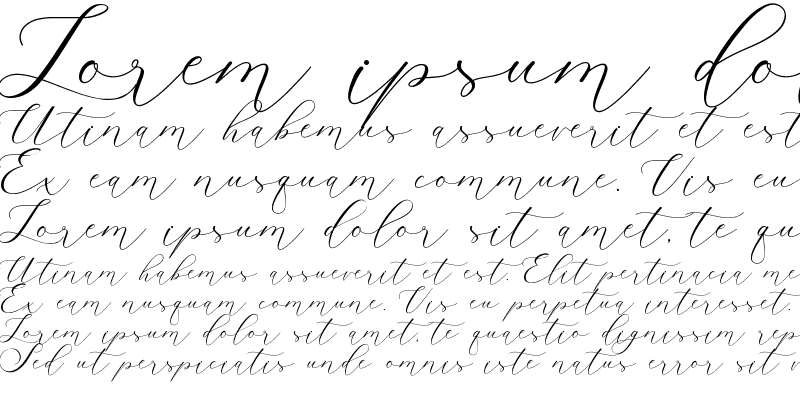 Lorem ipsum do
Utinam habemus assueverit et est
Ex eam nusquam commune. Vis eu
Lorem ipsum dolor sit amet, te qu
Utinam habemus assueverit et est. Elit pertinacia me
Ex eam nusquam commune. Vis eu perpetua interesset.
Lorem ipsum dolor sit amet, te quaestio dignissim rep
Sed ut perspiciatis unde omnis iste natus error sit v